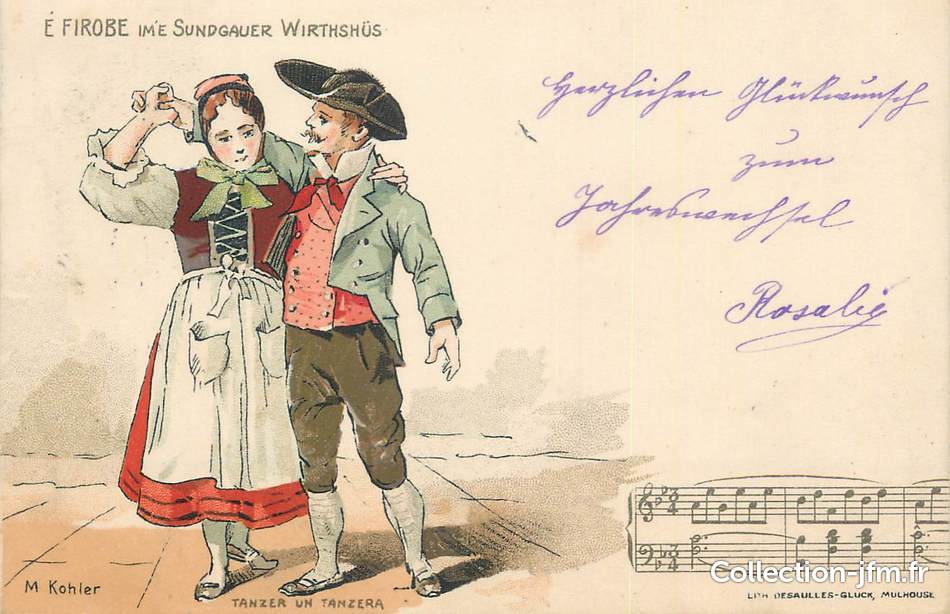 É FIROBE IM'E SUNDGAUER WIRTHSHÜS
Herzlichen Glückwunsch
zum
Jahreswechsel
Rosalie
M Kohler
TANZER UN TANZERA
Collection-jfm.fr
LITH DESAULLES-GLUCK, MULHOUSE